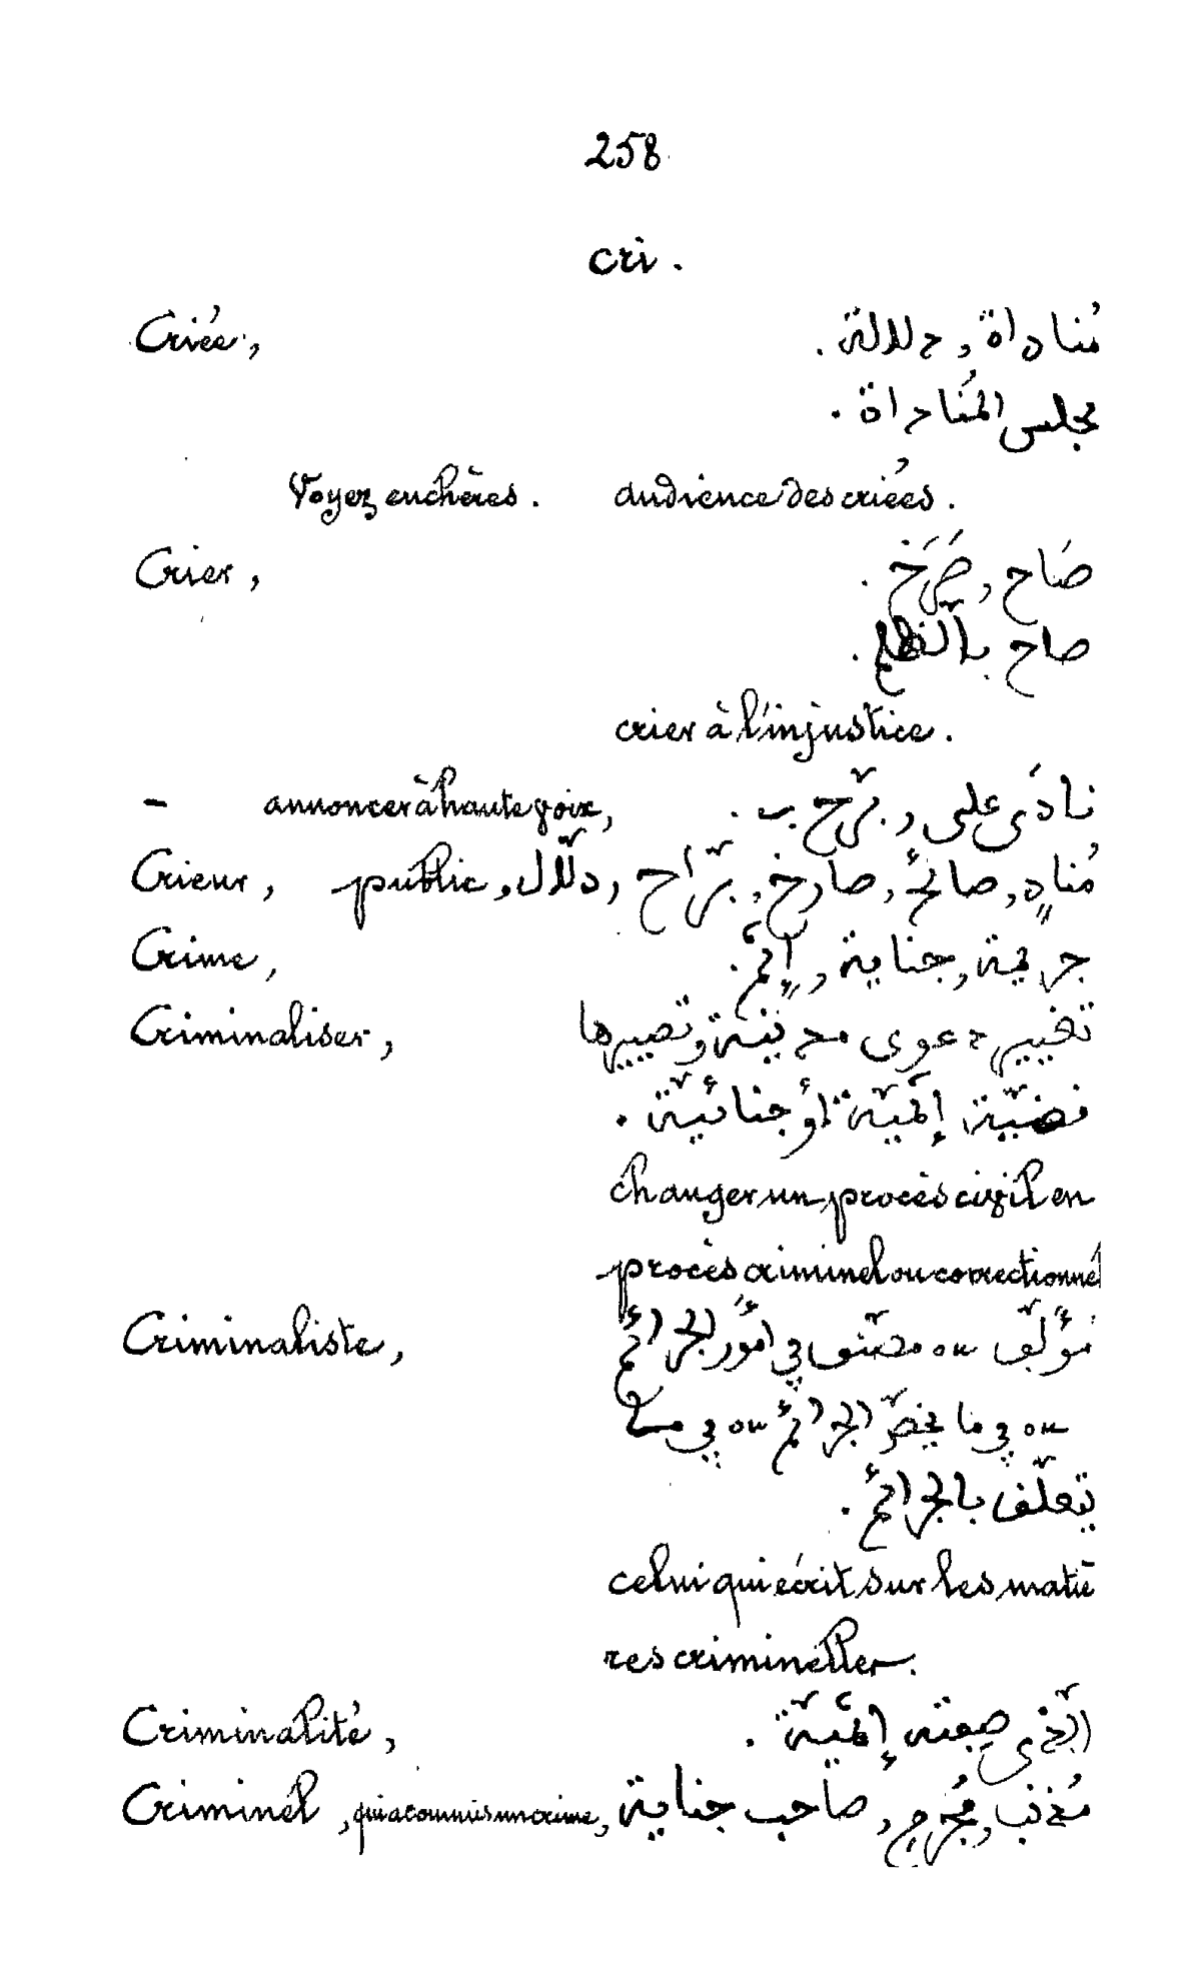 258
cri.
Criée, مُناداة, دلالة.
مجلس المُناداة.
Voyez enchères. audience des criées.
Crier, صَاح, صَرَخَ.
صاح بالظلم.
crier à l'injustice.
– annoncer à haute voix, نادَى على, برّح بـ.
Crieur, public, مُنادٍ, صائحٌ, صارخ, برّاح, دلّال
Crime, جريمة, جناية, إثمٌ.
Criminaliser, تغيير دعوى مدنيّة وتصييرها
قضيّة إثميّة أو جنائيّة.
changer un procès civil en
procès criminel ou correctionnel
Criminaliste, مؤلّف ou مصنّف في امُور الجرائم
ou في ما يخصّ الجرائم ou في مـا
يتعلّق بالجرائم.
celui qui écrit sur les matiè
res criminelles.
Criminalité, الّذي صِفته إثميّة.
Criminel, qui a commis un crime, مُذنب, مُجرِم, صاحب جناية